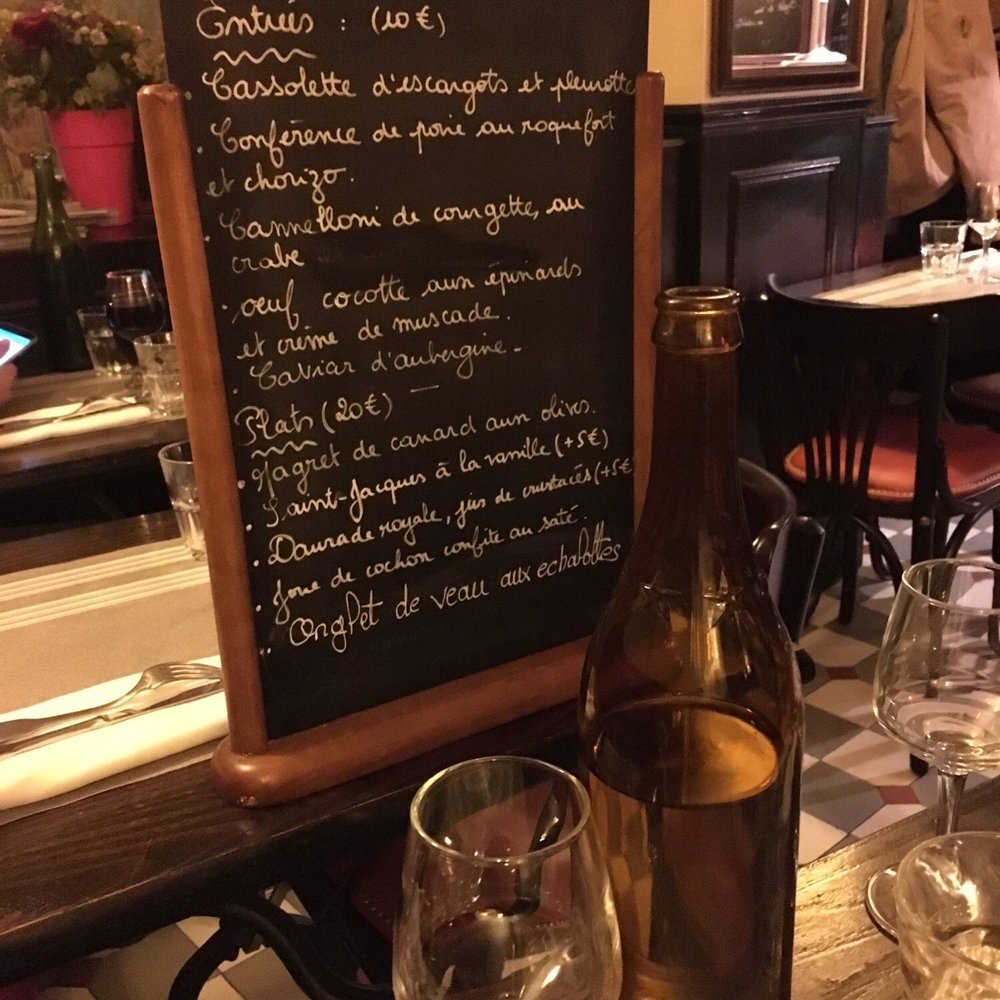 Entrées : (10€)
. Cassolette d'escargots et pleurotte
. Conférence de poire au roquefort
et chorizo.
. Cannelloni de courgette, au
crabe
. oeuf cocotte aux épinards
et crème de muscade.
. Caviar d'aubergine -
Plats (20€)
. Magret de canard aux olives.
. Saint-Jacques à la vanille (+5€)
. Daurade royale, jus de crustacés (+5€
. Joue de cochon confite au saté.
. Onglet de veau aux echalottes